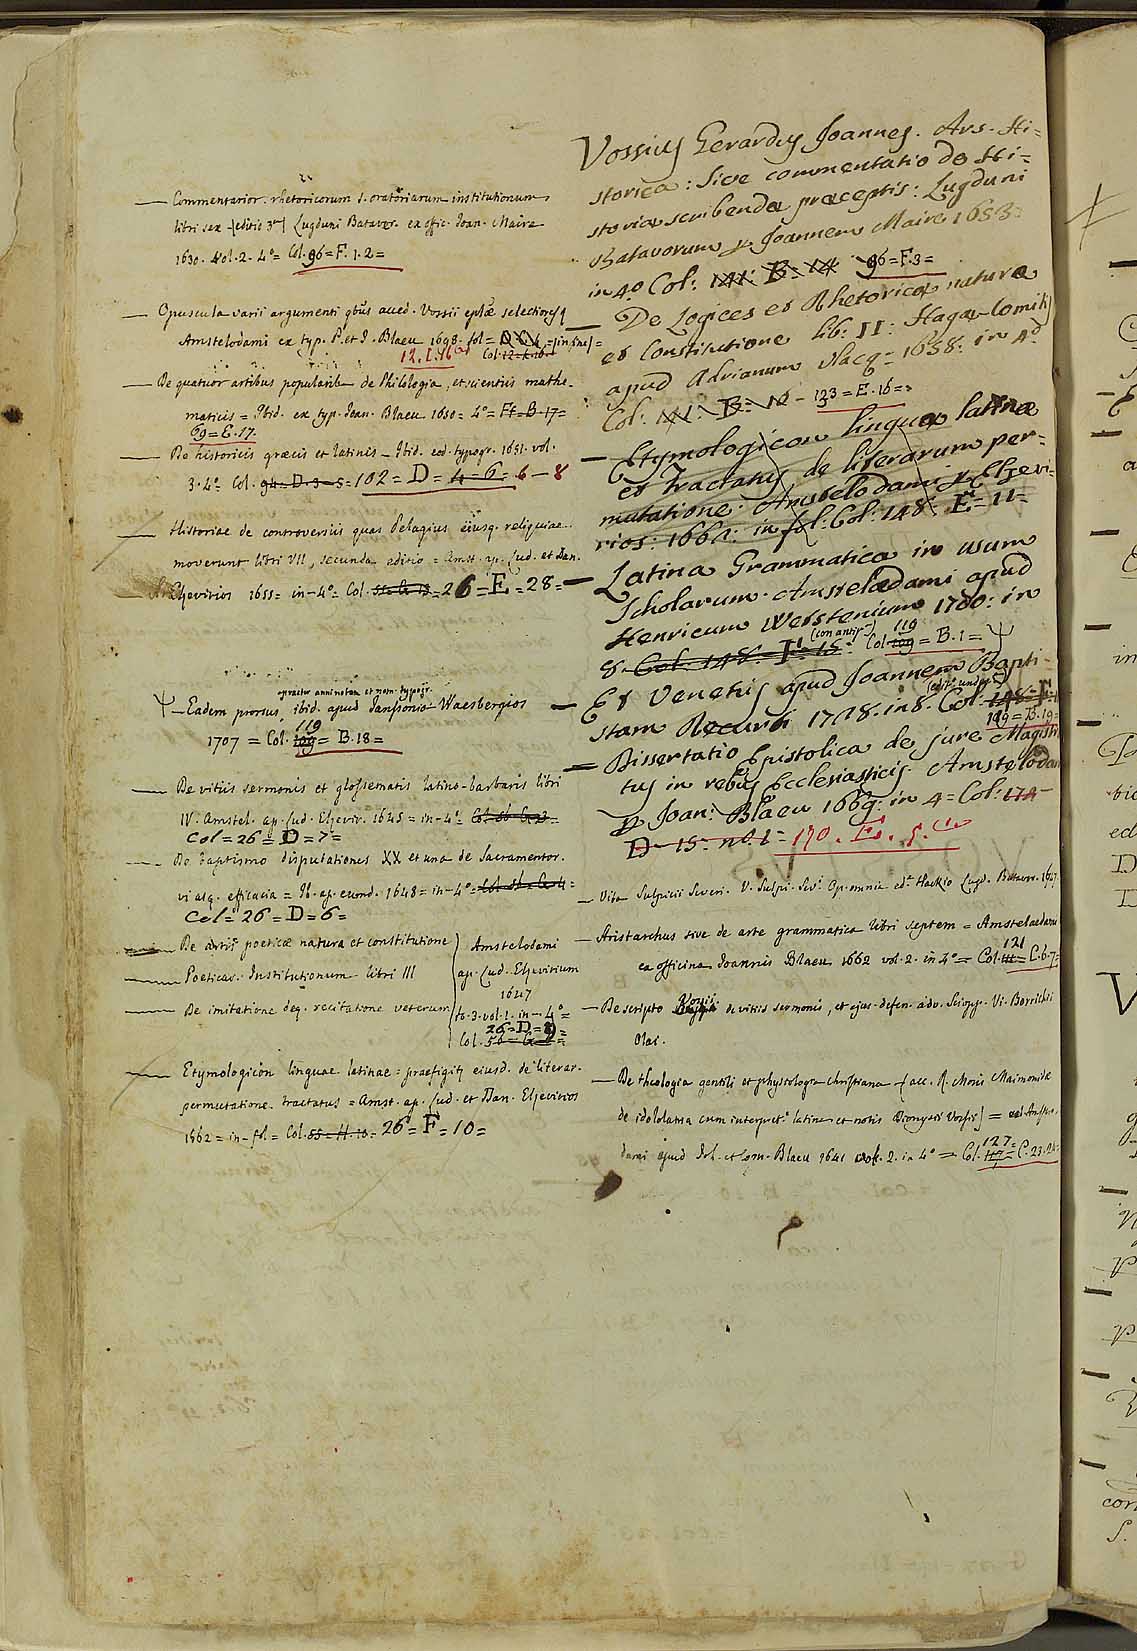 Vossius Gerardus Joannes. Ars Hi=
storica: sive commentatio de Hi=
storia scribenda praeceptis: Lugduni
Batavorum p Joannem Maire 1653:
in 4º Col: 96=F.3=
— De Logices et Rhetoricae natura
et Constitutione lib: II: Hagae Comitis
apud Adrianum Vlacq= 1658: in 4º
Col: 123=E.16=
— Etymologicon linguae latinae
et Tractatus de literarum per=
mutatione: Amstelodami p Elzevi=
rios: 1662: in fol: Col: 148: E=11=
— Latina Grammatica in usum
Scholarum. Amstelaedami apud
Henricum Wetstenium 1700: in
8. Col: 148= F= 15: Col 119 = B.1= Ψ
— Et Venetiis apud Joannem Bapti
stam Recurti 1728. in 8. Col.
119=B.19=
= Dissertatio Epistolica de jure Magistra
tus in rebus Ecclesiasticis. Amstelodam
p Joan: Blaeu 1669: in 4= Col: 174
D 15: nº 2= 170. E. 5.
— Vita Sulpicii Severi. V. Sulpi. Sev. Op. omnia ed. Hackio Lugd. Batavor. 1647
— Aristarchus sive de arte grammatica libri septem = Amstelaedami
ex officina Joannis Blaeu 1662 vol. 2. in 4º = Col. 121 = C.6.7=
— De scripto Vossii de vitiis sermonis, et ejus defen. adv. Sciopp. Vi. Borrichii
Olai.
— De theologia gentili et physiologia christiana (acc. R. Mosis Maimonidae
de idololatria cum interpret. latina et notis Dionysii Vossii) = Amstero=
dami apud Joh. et Corn. Blaeu 1641 vol. 2. in 4º = Col. 127= C. 23.24=
— Commentarior. rhetoricorum s. oratoriarum institutionum
libri sex (editio 3ª) Lugduni Batavor. ex offic. Joan. Maire
1630. vol. 2. 4º= Col. 96=F.1.2=
— Opuscula varii argumenti qbus acced. Vossii eplae selectiores
Amstelodami ex typ. P. et J. Blaeu 1698. fol = (in fine)=
12.I.16 Col.
— De quatuor artibus popularib. de Philologia, et scientiis mathe=
maticis = Ibid. ex typ. Joan. Blaeu 1650= 4º= Ff=B.17=
69=E.17.
— De historicis graecis et latinis — Ibid. eod. typogr. 1651. vol.
3. 4º Col. 94=D.3=5= 102=D=4=6= 6—8
— Historiae de controversiis quas Pelagius eiusq. reliquiae
moverunt libri VII, secunda editio = Amst. ap. Lud. et Dan.
Elzevirios 1655= in-4º= Col. 26=E=28=
praeter anni notam et nom. typogr.
Ψ — Eadem prorsus ibid. apud Janssonio-Waesbergios
1707 = Col. 119 = B.18=
— De vitiis sermonis et glossematis latino-barbaris libri
IV. Amstel. ap. Lud. Elzevir. 1645= in-4º=
Col=26=D=7=
— De baptismo disputationes XX et una de Sacramentor.
vi atq. efficacia = Ib. ap. eumd. 1648= in-4º=
Col=26=D=6=
— De artis poeticae natura et constitutione
— Poeticar. Institutionum libri III
— De imitatione deq. recitatione veterum
Amstelodami
ap. Lud. Elzevirium
1647
to. 3. vol. 1. in-4º=
26=D=8=
— Etymologicon linguae latinae= praefigitur eiusd. de literar.
permutatione tractatus = Amst. ap. Lud. et Dan. Elzevirios
1662= in-fol= Col. 55=H.10= 26=F=10=